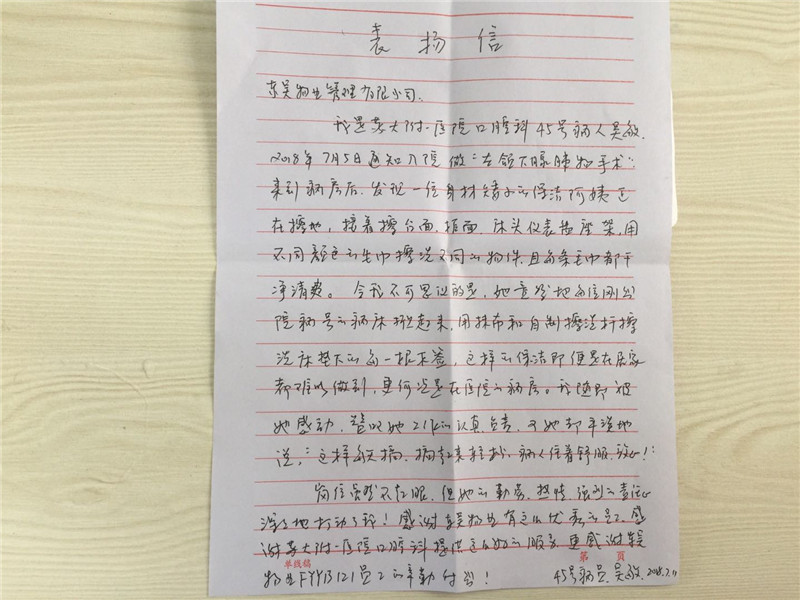 表扬信
东吴物业管理有限公司.
我是苏大附一医院口腔科45号病人吴敏.
2018年7月5日通知入院做“左颌下腺肿物手术”.
来到病房后,发现一位身材矮小的保洁阿姨正
在擦地,接着擦台面.柜面.床头仪表盘座架,用
不同颜色的毛巾擦洗不同的物件.且每条毛巾都干
净清爽。令我不可思议的是,她竟然地每位刚出
院病号的病床掀起来,用抹布和自制擦洗杆擦
洗床垫下的每一根床
这样的保洁即便是在居家
都难以做到,更何况是在医院的病房。我随即被
她感动,赞叹她工作的认真负责,可她却平淡地
说,“这样能搞,病人住着舒服.
岗位虽然不起眼.但她的勤劳、热情、强烈的责任心
深深地打动了我!感谢东吴物业有这么优秀的员工,感
谢苏大附一医院口腔科提供这么好的服务.更感谢东吴
物业FYYB121员工的辛勤付出!
45号病员.吴敏.2018.7.11
单线稿
第 页